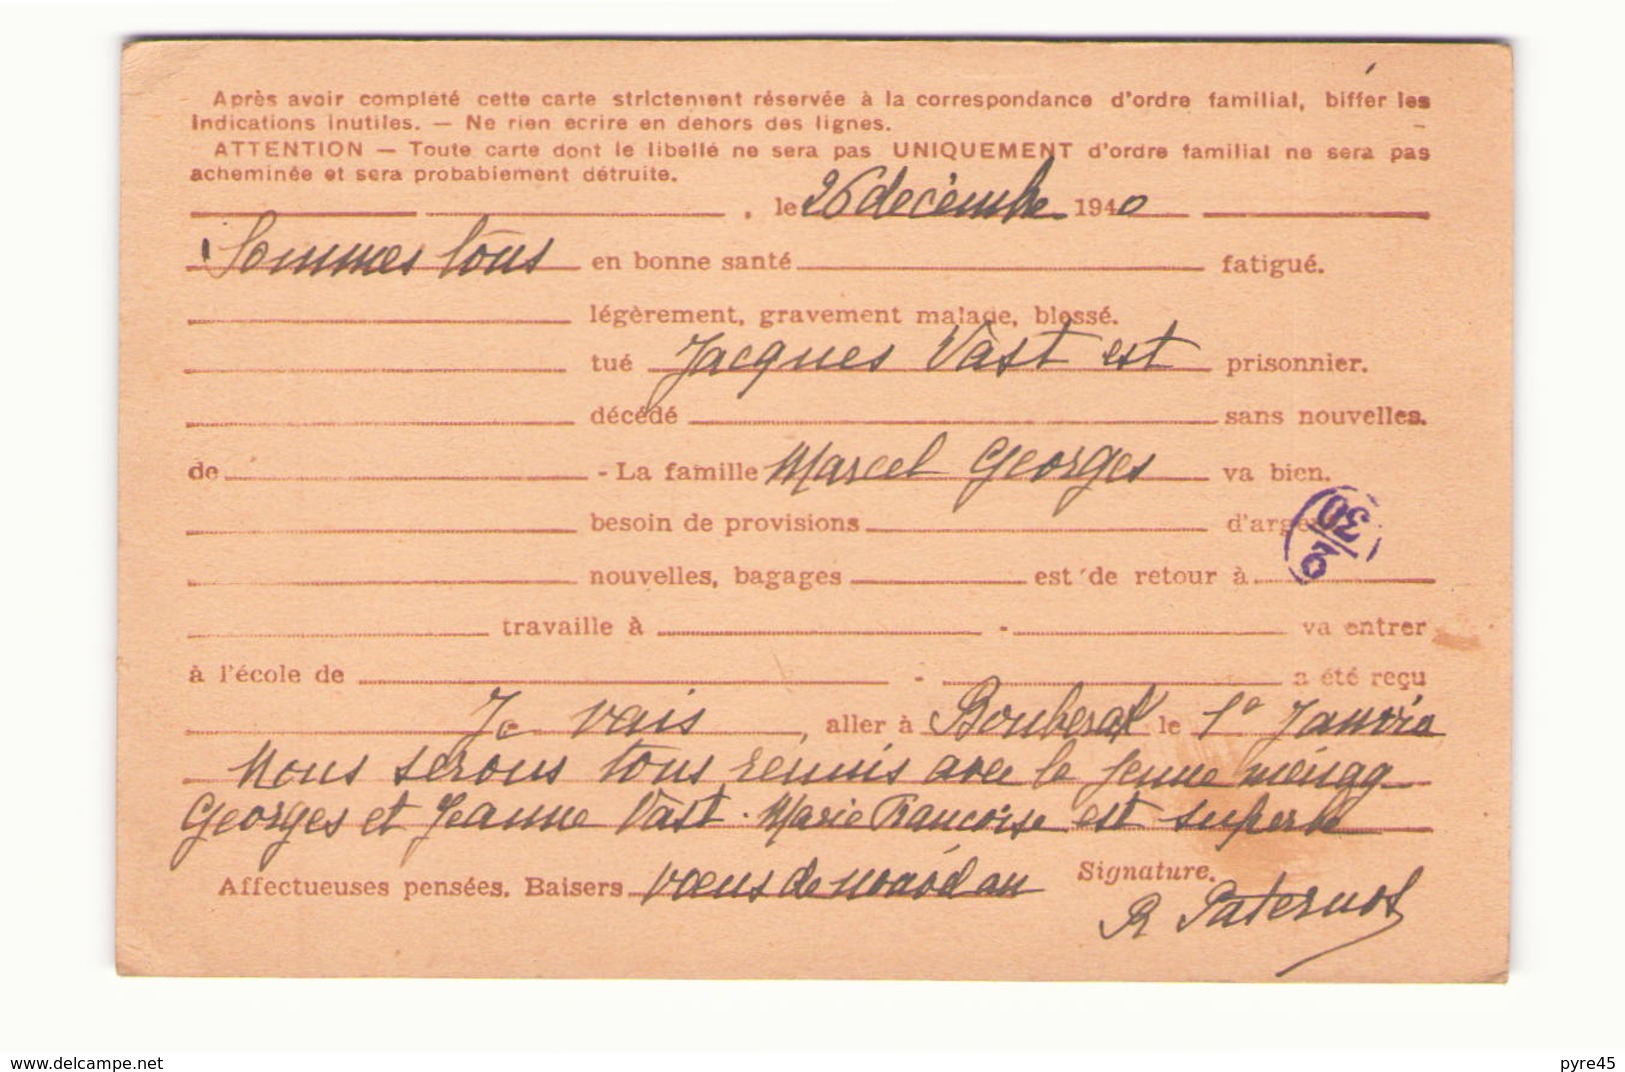 Après avoir complété cette carte strictement réservée à la correspondance d'ordre familial, biffer les
indications inutiles. — Ne rien ecrire en dehors des lignes.
ATTENTION — Toute carte dont le libellé ne sera pas UNIQUEMENT d'ordre familial ne sera pas
acheminée et sera probablement détruite.
, le 26 decembre 1940
Sommes tous en bonne santé fatigué.
légèrement, gravement malade, blessé.
tué Jacques Vast est prisonnier.
décédé sans nouvelles.
de - La famille Marcel Georges va bien.
besoin de provisions d'argent
nouvelles, bagages est de retour à
travaille à - va entrer
à l'école de - a été reçu
Je vais, aller à le 1e Janvier
Nous serons tous réunis avec le jeune
Georges et Jeanne Vast. Marie Francoise est superbe
Affectueuses pensées. Baisers voeux de Signature.
R Paternot
30
2
www.delcampe.net
pyre45